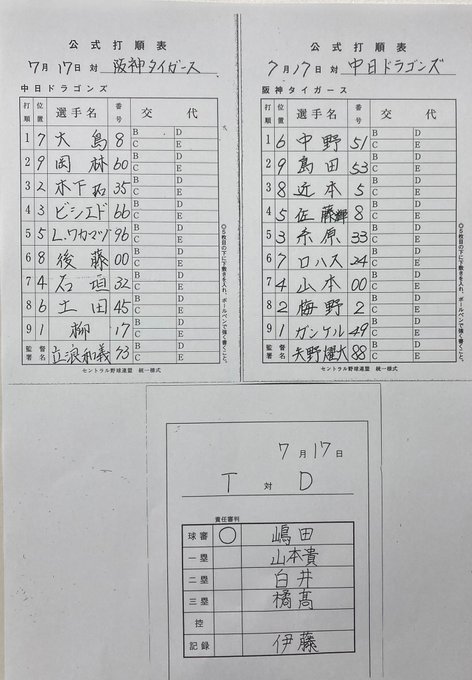 公式打順表
7月17日 対 阪神タイガース
中日ドラゴンズ
打順 位置 選手名 番号 交代
1 7 大島 8 B C D E
2 9 岡林 60 B C D E
3 2 木下拓 35 B C D E
4 3 ビシエド 66 B C D E
5 5 L.ワカマツ 96 B C D E
6 8 後藤 00 B C D E
7 4 石垣 32 B C D E
8 6 土田 45 B C D E
9 1 柳 17 B C D E
監督署名 立浪和義 73
セントラル野球連盟 統一様式
◎5枚目の下に下敷きを入れ、ボールペンで強く書くこと。
公式打順表
7月17日 対 中日ドラゴンズ
阪神タイガース
打順 位置 選手名 番号 交代
1 6 中野 51 B C D E
2 9 島田 53 B C D E
3 8 近本 5 B C D E
4 5 佐藤輝 8 B C D E
5 3 糸原 33 B C D E
6 7 ロハス 24 B C D E
7 4 山本 00 B C D E
8 2 梅野 2 B C D E
9 1 ガンケル 49 B C D E
監督署名 矢野燿大 88
セントラル野球連盟 統一様式
◎5枚目の下に下敷きを入れ、ボールペンで強く書くこと。
7月17日
T 対 D
責任審判
球審 ○ 嶋田
一塁 山本貴
二塁 白井
三塁 橘髙
控
記録 伊藤